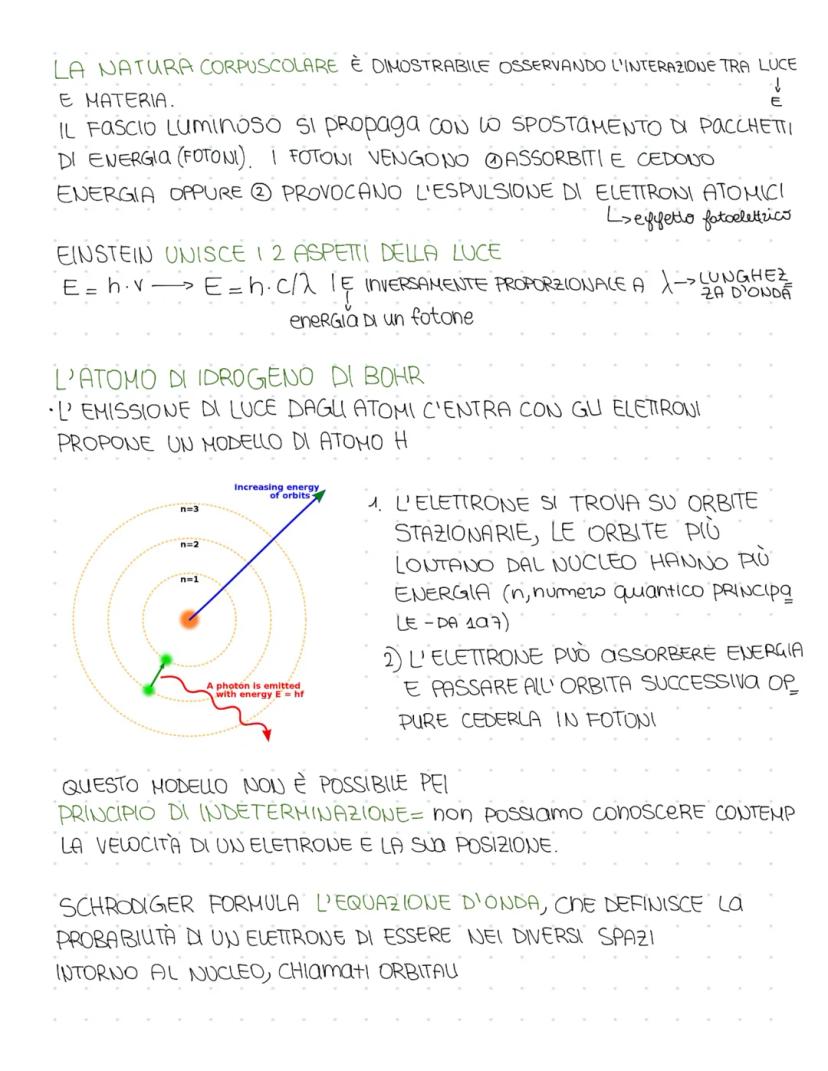 LA NATURA CORPUSCOLARE È DIMOSTRABILE OSSERVANDO L'INTERAZIONE TRA LUCE
↓
E
E MATERIA.
IL FASCIO LUMINOSO SI PROPAGA CON LO SPOSTAMENTO DI PACCHETTI
DI ENERGIA (FOTONI). I FOTONI VENGONO ① ASSORBITI E CEDONO
ENERGIA OPPURE ② PROVOCANO L'ESPULSIONE DI ELETTRONI ATOMICI
↳ effetto fotoelettrico
EINSTEIN UNISCE I 2 ASPETTI DELLA LUCE
E = h·ν → E = h·c/λ | E INVERSAMENTE PROPORZIONALE A λ → LUNGHEZ
ZA D'ONDA
energia di un fotone
L'ATOMO DI IDROGENO DI BOHR
·L'EMISSIONE DI LUCE DAGLI ATOMI C'ENTRA CON GLI ELETTRONI
PROPONE UN MODELLO DI ATOMO H
Increasing energy
of orbits
n=3
n=2
n=1
A photon is emitted
with energy E = hf
1. L'ELETTRONE SI TROVA SU ORBITE
STAZIONARIE, LE ORBITE PIÙ
LONTANO DAL NUCLEO HANNO PIÙ
ENERGIA (n, numero quantico PRINCIPA
LE - DA 1 a 7)
2) L'ELETTRONE PUÒ ASSORBERE ENERGIA
E PASSARE ALL'ORBITA SUCCESSIVA OP
PURE CEDERLA IN FOTONI
QUESTO MODELLO NON È POSSIBILE PEI
PRINCIPIO DI INDETERMINAZIONE = non possiamo conoscere CONTEMP
LA VELOCITÀ DI UN ELETTRONE E LA SUA POSIZIONE.
SCHRODIGER FORMULA L'EQUAZIONE D'ONDA, CHE DEFINISCE LA
PROBABILITÀ DI UN ELETTRONE DI ESSERE NEI DIVERSI SPAZI
INTORNO AL NUCLEO, CHIAMATI ORBITALI